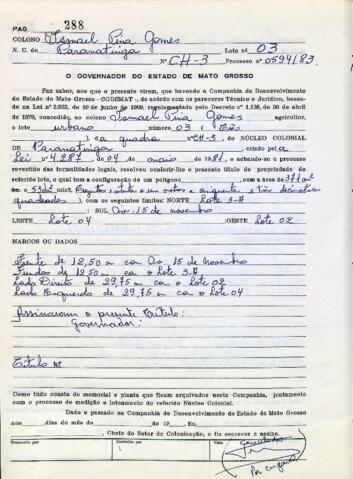 PAG 288
COLONO Ismael Pina Gomes
N. C. de Paranatinga Lote nº 03
Nº CH-3 Processo nº 0594/83
O GOVERNADOR DO ESTADO DE MATO GROSSO
Faz saber, aos que o presente virem, que havendo a Companhia de Desenvolvimento
do Estado de Mato Grosso - CODEMAT -, de acordo com os pareceres Técnico e Jurídico, basea-
da na Lei nº 2.933, de 10 de junho de 1969, regulamentada pelo Decreto nº 1.138, de 30 de abril
de 1970, concedido ao colono Ismael Pina Gomes agricultor,
o lote urbano número 03 (três
) da quadra nº CH-3, do NÚCLEO COLONIAL
DE Paranatinga criado pela
Lei nº 4.287, de 04 de maio de 1981, e achando-se o processo
revestido das formalidades legais, resolveu conferir-lhe o presente título de propriedade do
referido lote, o qual tem a configuração de um polígono, com a área de 371 m²
quadrados), com os seguintes limites: NORTE Lote 3-A
: SUL Av. 15 de novembro
LESTE Lote 04 :OESTE Lote 02
MARCOS OU DADOS
Frente de 12,50 m c/a Av. 15 de Novembro
Fundos de 12,50 m c/a o Lote 3-A
Lado Direito de 29,75 m c/o Lote 02
Lado Esquerdo de 29,75 m c/o Lote 04
Assinaram o presente título:
Governador:
Título nº
Como tudo consta do memorial e planta que ficam arquivados nesta Companhia, juntamente
com o processo de medição e loteamento do referido Núcleo Colonial.
Dado e passado na Companhia de Desenvolvimento do Estado de Mato Grosso
aos dias do mês de de 19 , Eu
, Chefe do Setor de Colonização, o fiz escrever e assino.
Transcrito por Conferido por Visto
Cancelado
Por engano